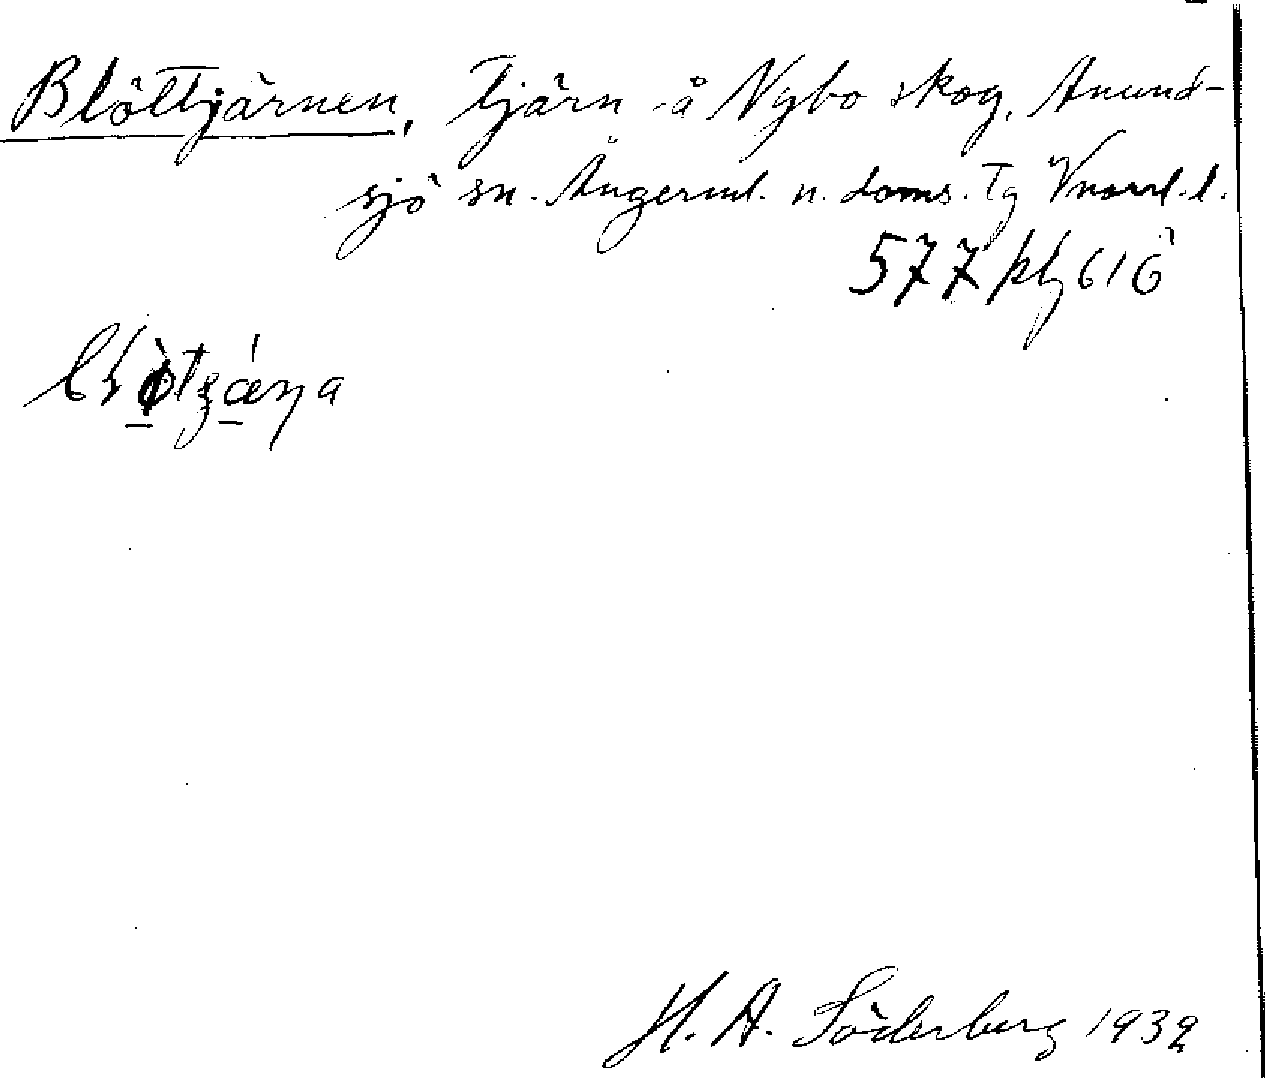 Blöttjärnen, Tjärn å Nybo skog, Anund-
sjö sn. Ångerml. n. doms. Tg Vnorrl. l.
577 ptz 616
H. A. Söderberg 1932